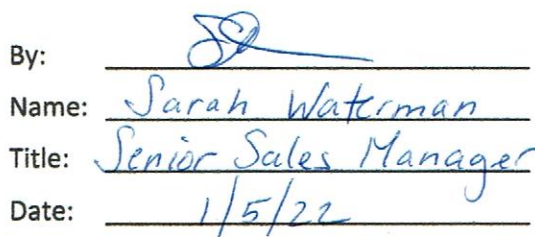 By:
Name: Sarah Waterman
Title: Senior Sales Manager
Date: 1/5/22